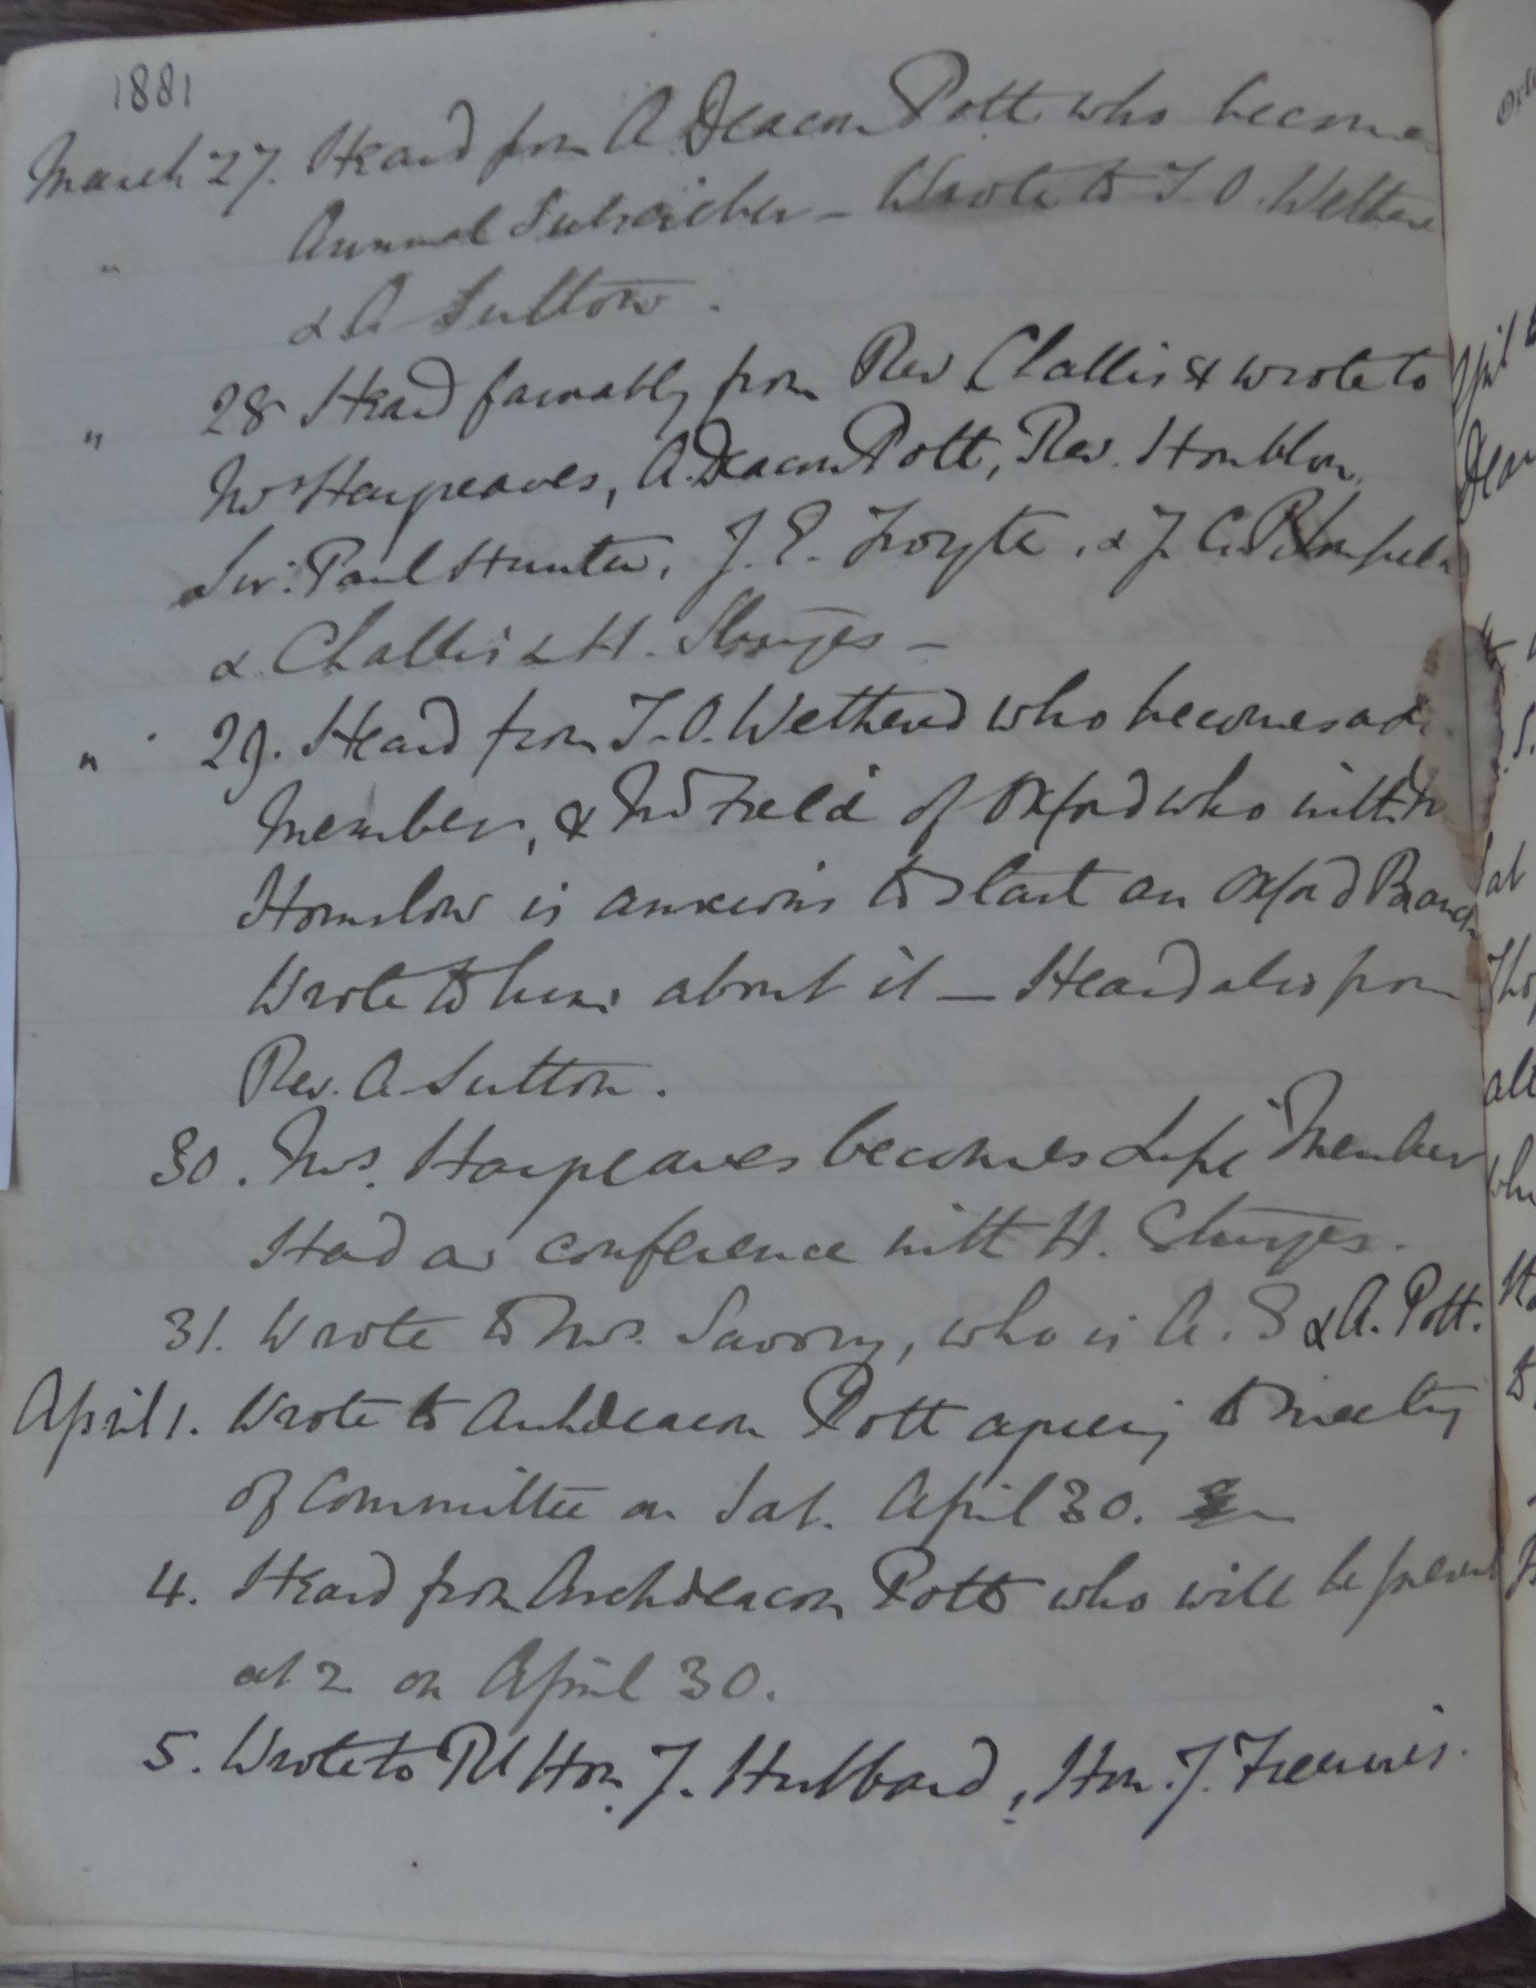 1881
March 27. Heard from A Deacon Pott who becomes
" Annual Subscriber – Wrote to T. O. Wethere
& A Sutton.
" 28 Heard favourably from Rev Challis & wrote to
Mrs Hargreaves, A. Deacon Pott, Rev. Houblon,
Sir: Paul Hunter, J. E. Froyte, & J. C.
& Challis & H. Sturges –
" 29. Heard from T. O. Wethered who becomes a
Member, & Mr Field of Oxford who with
Hornslow is anxious to start an Oxford Branch
Wrote to him about it – Heard also from
Rev. A Sutton.
30. Mrs. Hargreaves becomes Life Member
Had a conference with H. Sturges.
31. Wrote to Mrs. Savory, who is A. S & A. Pott.
April 1. Wrote to Archdeacon Pott agreeing to meeting
of Committee on Sat. April 30.
4. Heard from Archdeacon Pott who will be present
at 2 on April 30.
5. Wrote to Rt Hon. J. Hubbard, Hon. J.